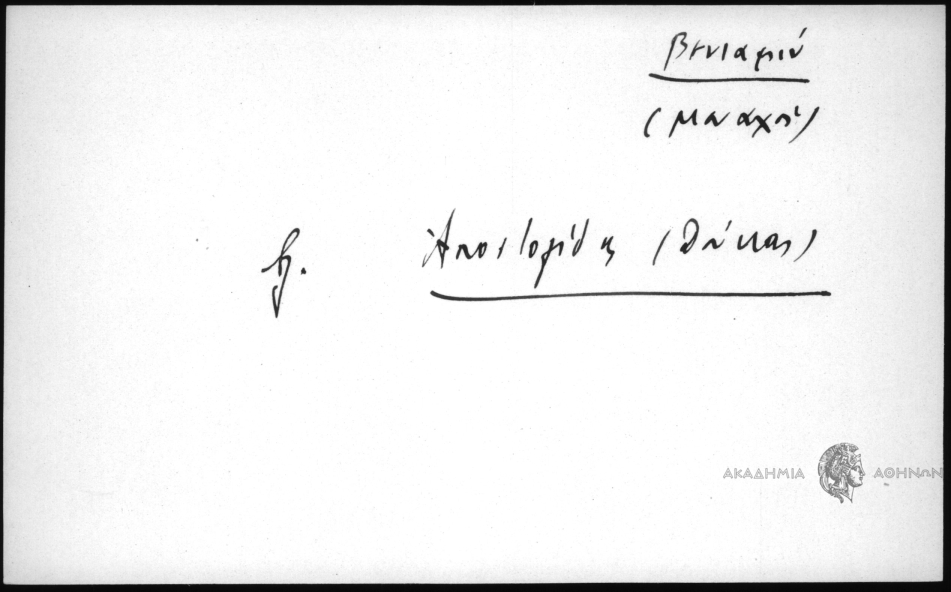 Βενιαμίν
(μοναχός)
βλ. Ἀποστολίδης (Δούκας)
ΑΚΑΔΗΜΙΑ ΑΘΗΝΩΝ